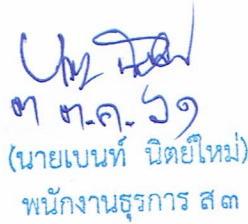 ๓ ต.ค. ๖๑
(นายเบนท์ นิตย์ใหม่)
พนักงานธุรการ ส ๓